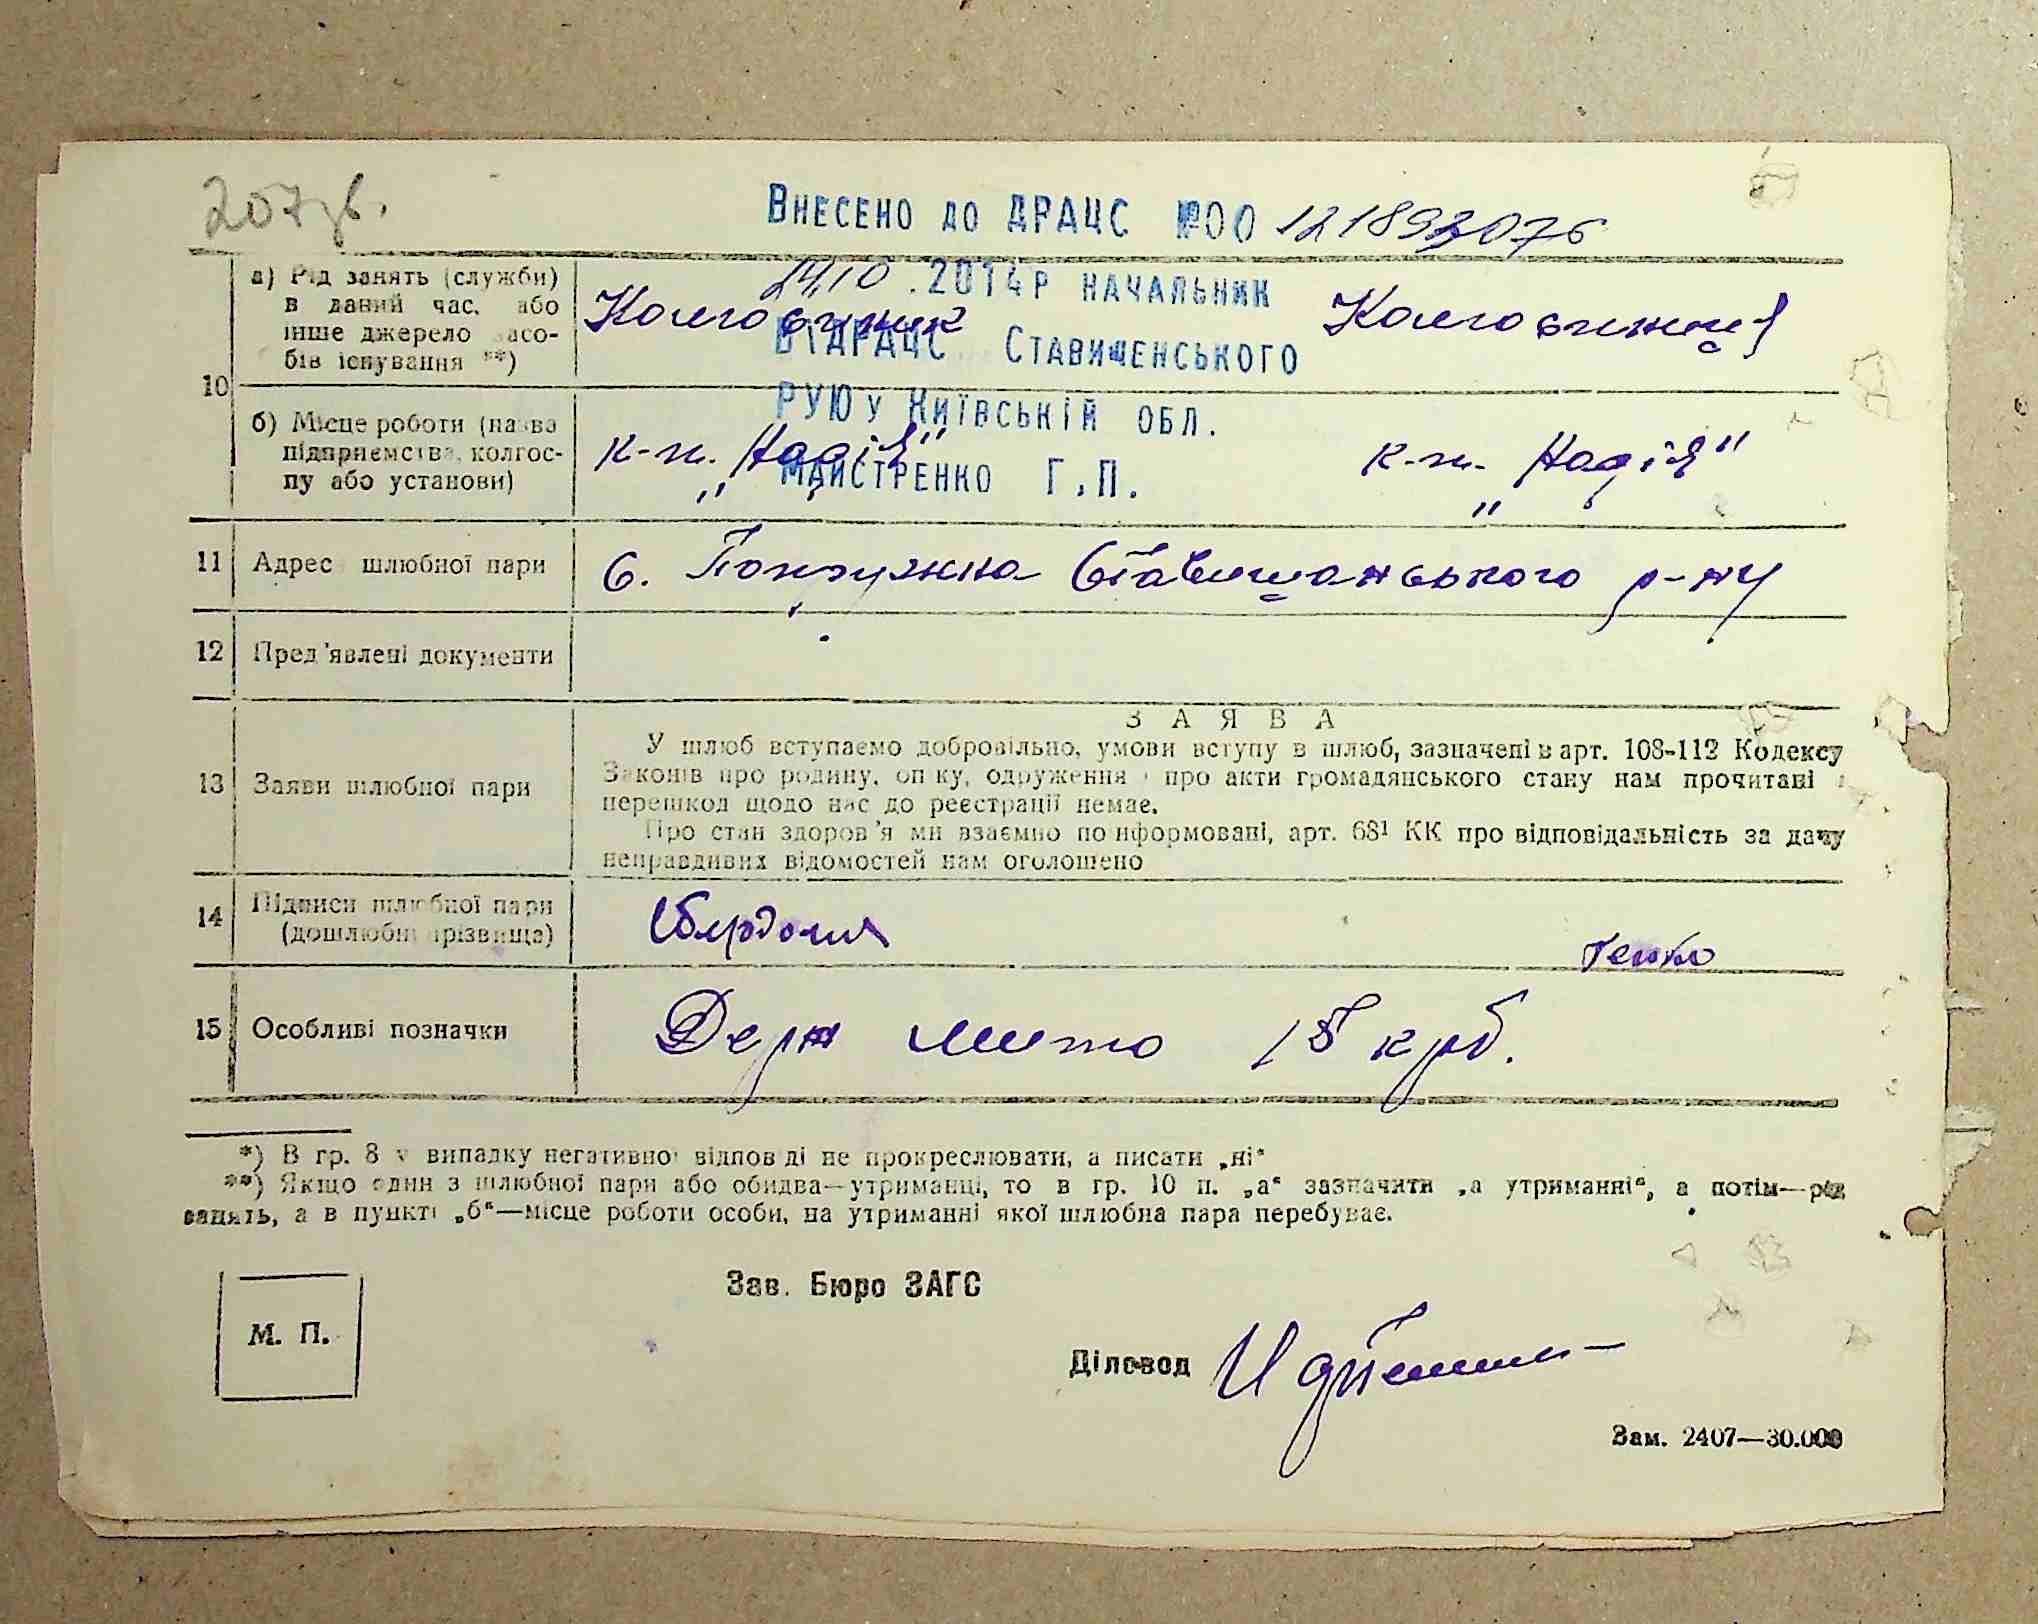 207зв.
Внесено до ДРАЦС №00121893076
24.10.2014р начальник
ВІДРАЦС Ставищенського
РУЮ у Київській обл.
Майстренко Г.П.
10
а) Рід занять (служби)
в даний час, або
інше джерело засо-
бів існування **)
Колгоспник Колгоспниця
б) Місце роботи (назва
підприємства, колгос-
пу або установи)
к-п. „Надія" к-п. „Надія"
11 Адрес шлюбної пари
с. Попружна Ставищанського р-ну
12 Пред'явлені документи
13 Заяви шлюбної пари
ЗАЯВА
У шлюб вступаємо добровільно, умови вступу в шлюб, зазначені в арт. 108-112 Кодексу
Законів про родину, опіку, одруження і про акти громадянського стану нам прочитані і
перешкод щодо нас до реєстрації немає.
Про стан здоров'я ми взаємно поінформовані, арт. 68¹ КК про відповідальність за дачу
неправдивих відомостей нам оголошено
14 Підписи шлюбної пари
(дошлюбні прізвища)
15 Особливі позначки
Держ мито 15 крб.
*) В гр. 8 у випадку негативної відповіді не прокреслювати, а писати „ні"
**) Якщо один з шлюбної пари або обидва—утриманці, то в гр. 10 п. „а" зазначити „а утриманні", а потім—рід
занять, а в пункті „б"—місце роботи особи, на утриманні якої шлюбна пара перебуває.
М. П.
Зав. Бюро ЗАГС
Діловод
Зам. 2407—30.000